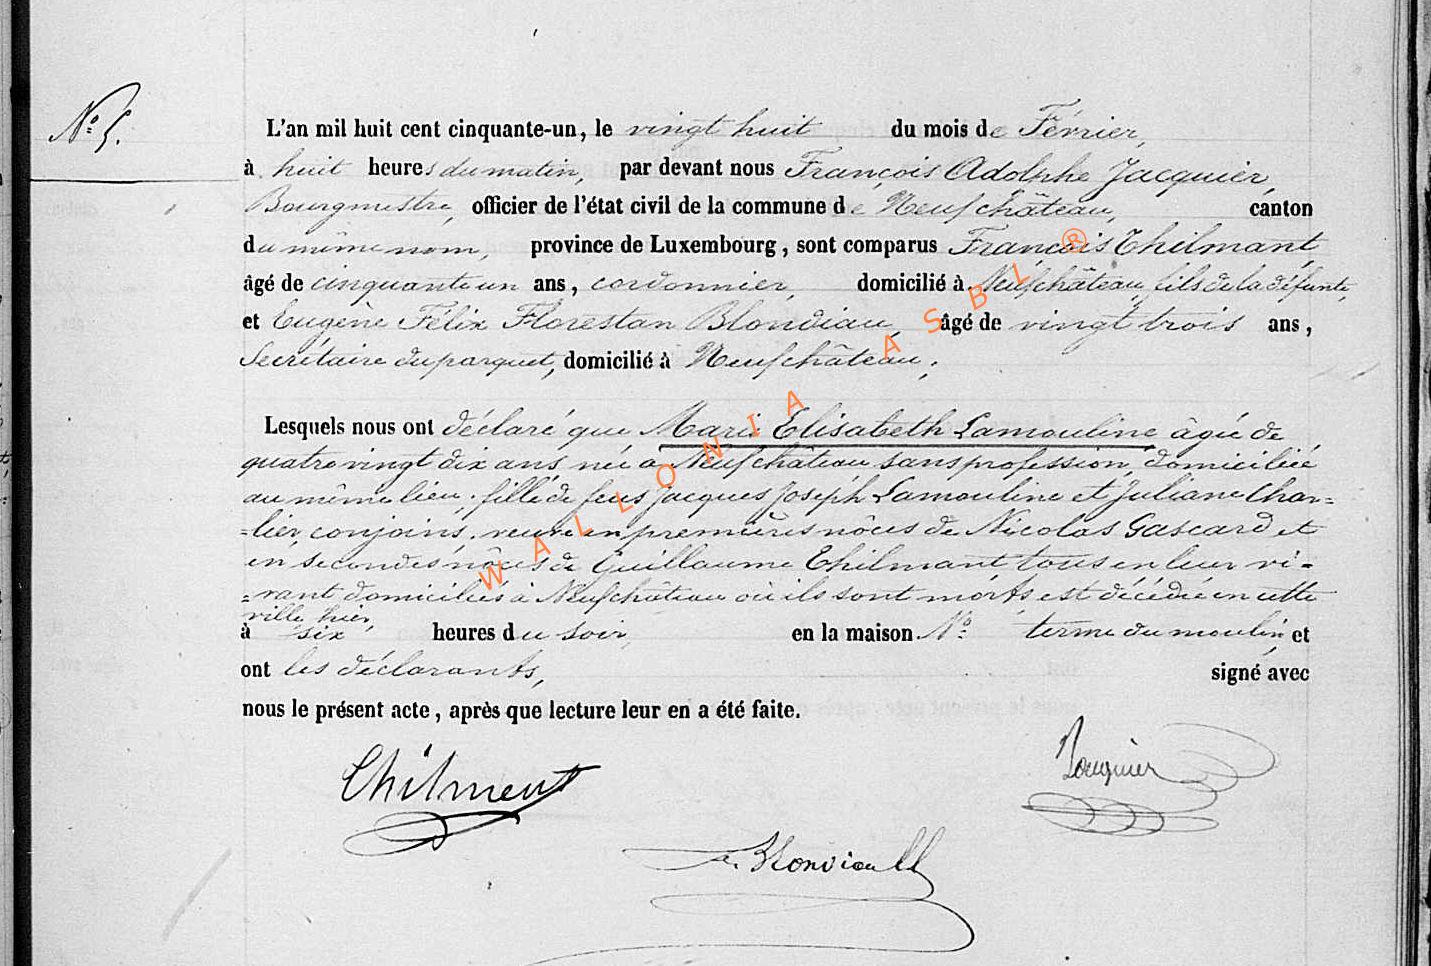 N° 5.
L'an mil huit cent cinquante-un, le vingt huit du mois de Février,
à huit heures du matin, par devant nous François Adolphe Jacquier,
Bourgmestre, officier de l'état civil de la commune de Neufchâteau, canton
du même nom, province de Luxembourg, sont comparus François Thilmant,
âgé de cinquante un ans, cordonnier, domicilié à Neufchâteau, fils de la défunte,
et Eugène Félix Florestan Blondiau, âgé de vingt trois ans,
Secrétaire du parquet, domicilié à Neufchâteau;
Lesquels nous ont déclaré que Marie Elisabeth Lamouline âgée de
quatre vingt dix ans née à Neufchâteau sans profession, domiciliée
au même lieu, fille de feus Jacques Joseph Lamouline et Juliane Char=
=lier, conjoins, veuve en premières nôces de Nicolas Gascard et
en secondes nôces de Guillaume Thilmant tous en leur vi=
=vant domiciliés à Neufchâteau où ils sont morts est décédée en cette
ville hier,
à six heures du soir, en la maison N°: terme du moulin, et
ont les déclarants, signé avec
nous le présent acte, après que lecture leur en a été faite.
Thilment
Jacquier
Blondiau
WALLONIA ASBL ®